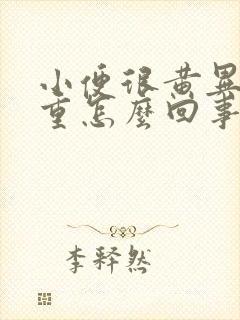 小便很黄異
重怎麼回事
李释然